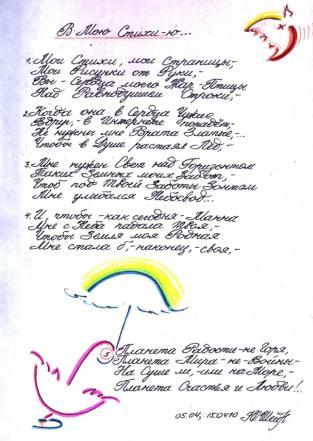 В Мою Стихи-ю...
1. Мои Стихи, мои Страницы,-
Мои Рисунки от Руки,-
Вы - Сердца моего Жар-Птицы
Над Равнодушьем Строки,-
2. Когда она в Сердца Чужие,
Вдруг,- в Интернете попадёт,-
Не нужны мне Врата Златые,-
Чтобы в Душе растаял Лёд,-
3. Мне нужен Свет над Горизонтом
Таких Земных моих Забот,-
Чтоб под Твоей Заботы Зонтом
Мне улыбался Небосвод...
4. И, чтобы - как сегодня - Манна
Мне с Неба падала Твоя,-
Чтобы Земля моя Родная
Мне стала б,- наконец,- своя,-
5 Планета Радости - не Горя,
Планета Мира - не - Войны -
На Суше ли, - или на Море,-
Планета Счастья и Любви!..
05.04, 15.04.10